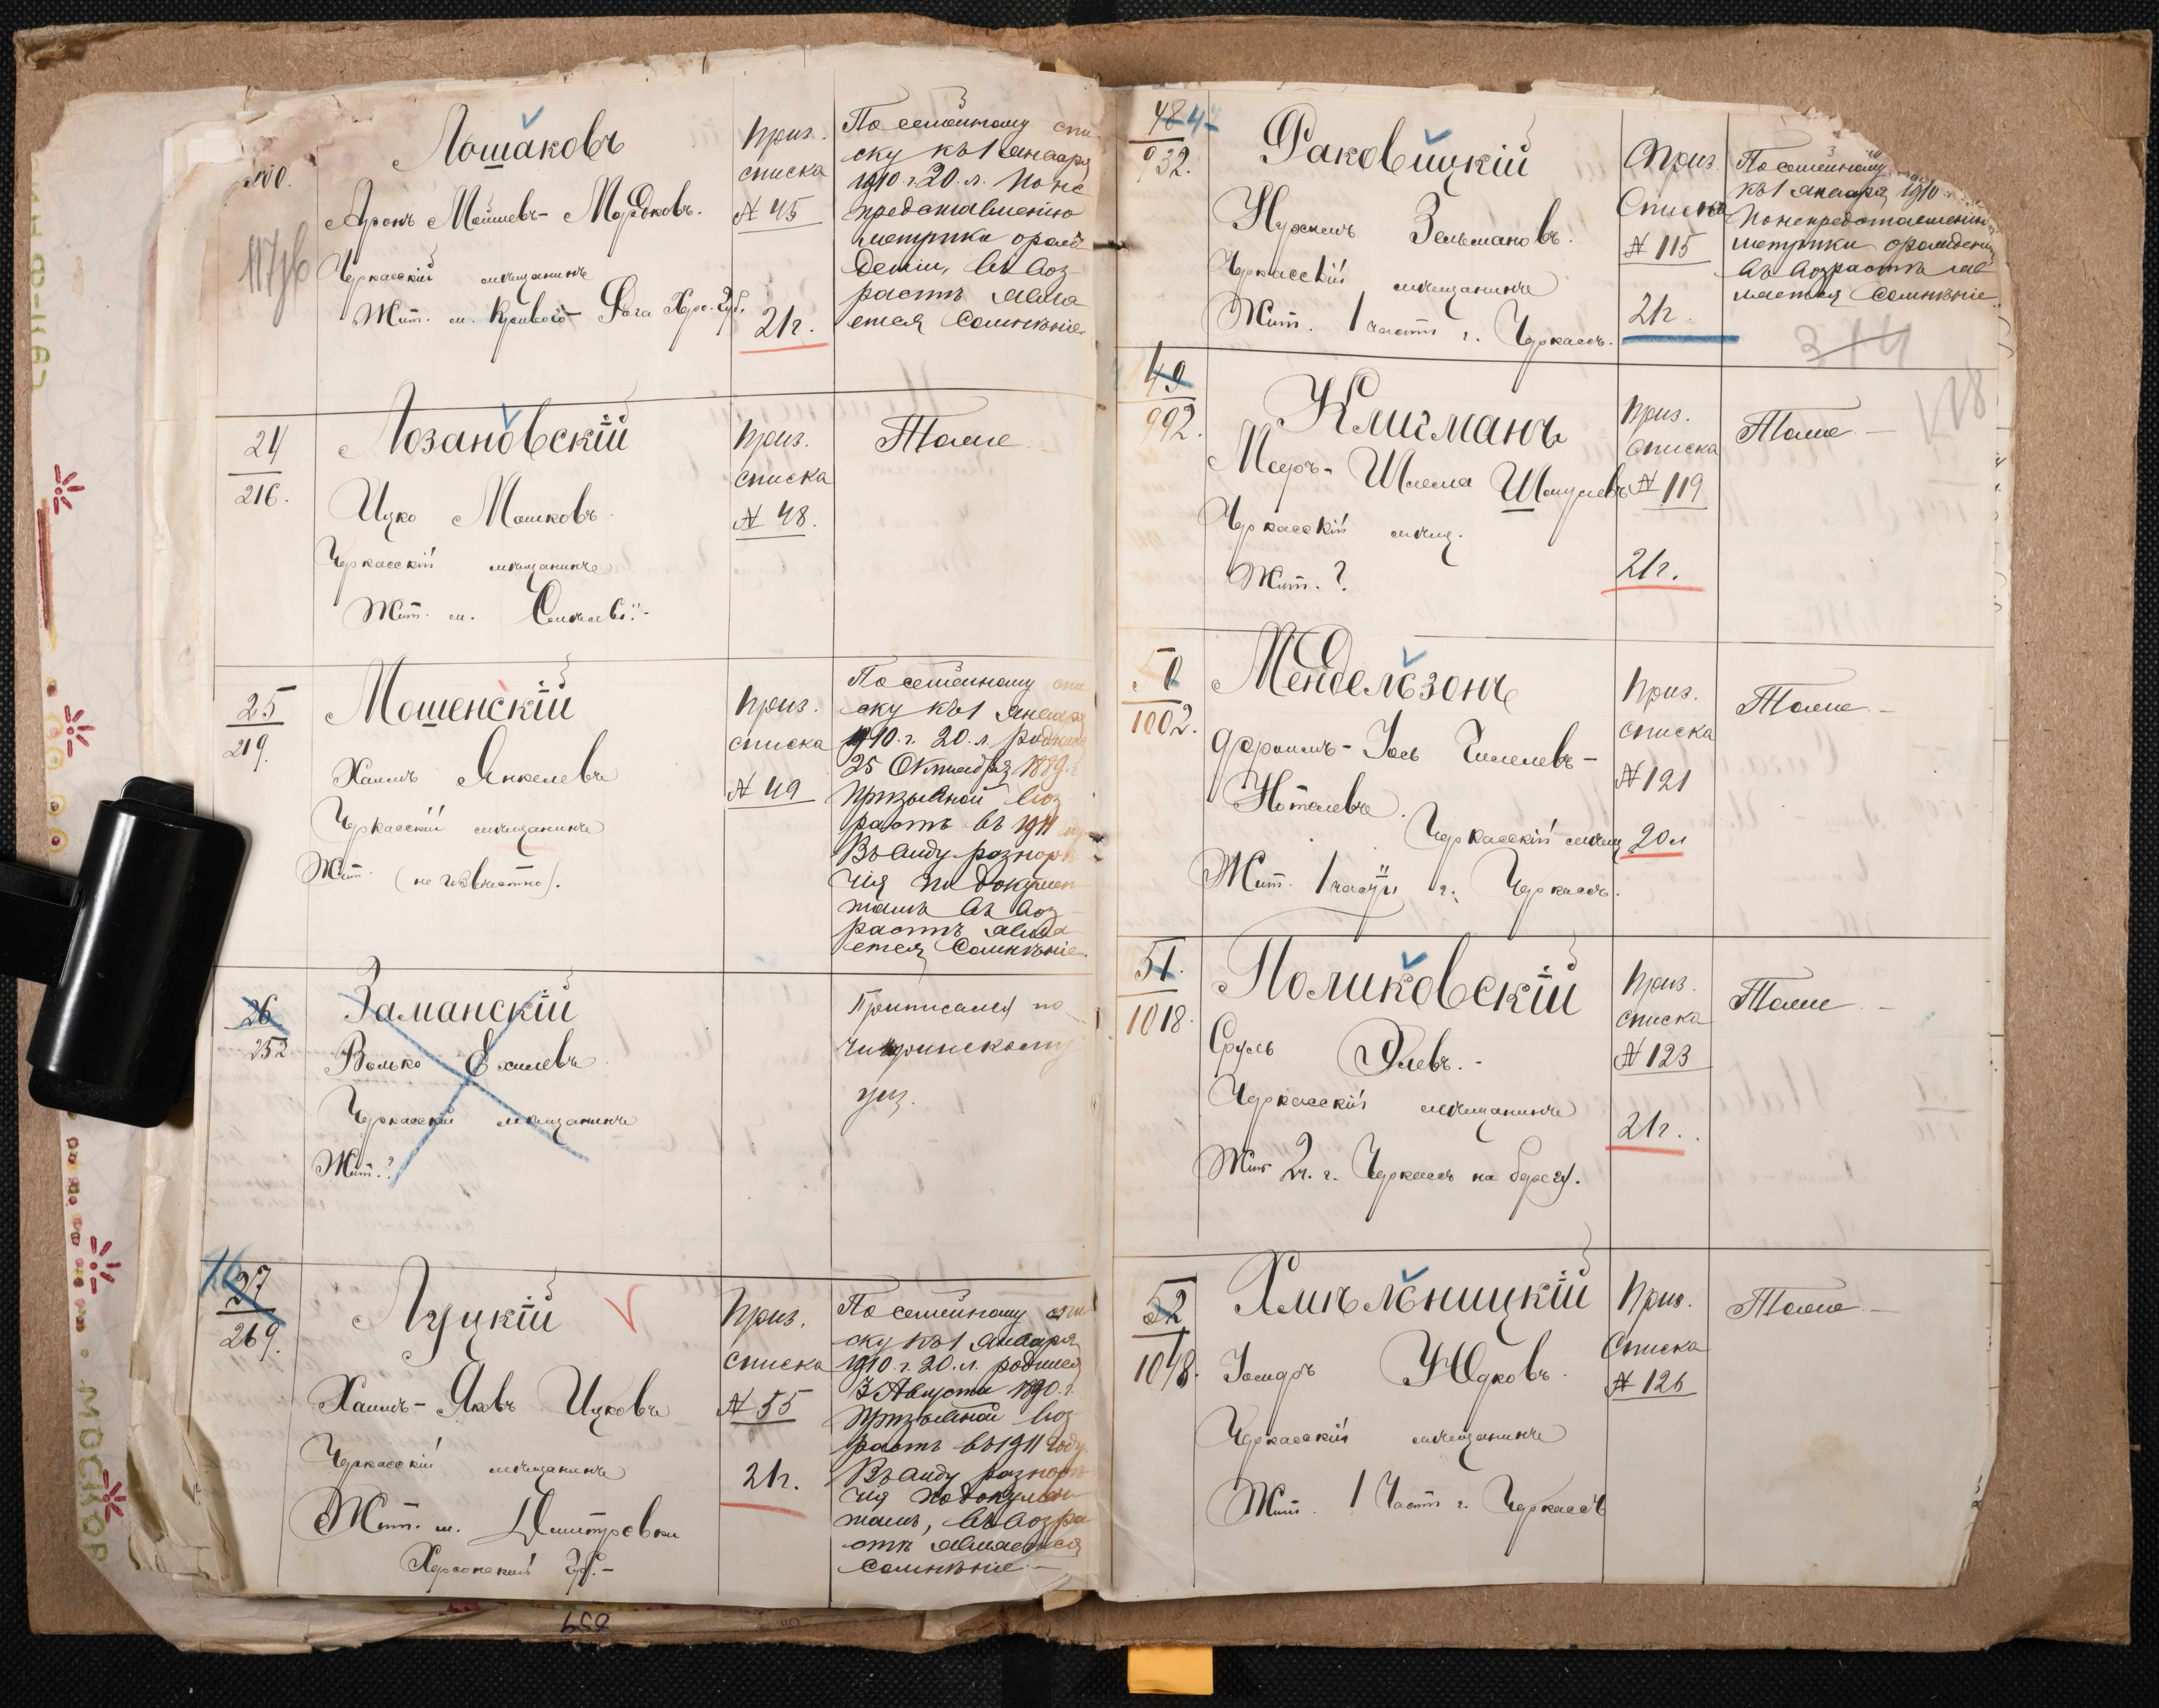 Лошаковъ
Аронъ Мошиевъ-Мордковъ.
Черкасскій мѣщанинъ
Жит. м. Кривого-Рога Хер. Губ.
Приз.
списка
№ 45
21 г.
По семейному спи
ску къ 1 Января
1910 г. 20. л. По не
представленію
метрики о рож
деніи, въ воз
растѣ явля
ется сомнѣніе
24
216.
Лозановскій
Ицко Мошковъ
Черкасскій мѣщанинъ
Жит. м.
Приз.
списка
№ 48.
Тоже
25
219.
Мошенскій
Хаимъ Янкелевъ
Черкасскій мѣщанинъ
Жит. (не извѣстно).
Приз.
списка
№ 49
По семейному спи
ску къ 1 Января
1910. г. 20. л. родился
25 Октября 1889 г.
призывной воз
растъ въ 1911
Въ виду разнорѣ
чія по докумен
тамъ въ воз
растѣ явля
ется сомнѣніе.
26
252
Заманскій
Волько Ехилевъ
Черкасскій мѣщанинъ
Жит. ?
Приписался по
Чигиринскому
уѣз.
27
269.
Луцкій
Хаимъ-Яковъ Ицковъ
Черкасскій мѣщанинъ
Жит. м. Дмитровки
Херсонской Губ.-
Приз.
списка
№ 55
21 г.
По семейному спи
ску къ 1 Января
1910 г. 20. л. родился
3 Августа 1890. г.
призывной воз
растъ въ 1911 году.
Въ виду разнорѣ
чія по докумен
тамъ, въ возра
стѣ является
сомнѣніе.-
48
932.
Раковицкій
Нухимъ Зельмановъ.
Черкасскій мѣщанинъ
Жит. 1 части г. Черкассъ.
Приз.
Списка
№ 115
21 г.
По семейному
къ 1 Января 1910
По непредставленію
метрики о рожденіи
въ возрастѣ яв
ляется сомнѣніе.
314
128
49
992.
Клигманъ
Мееръ-Шлема Шмулевъ
Черкасскій мѣщ.
Жит. ?
Приз.
списка
№ 119
21 г.
Тоже.-
50
1002.
Мендельзонъ
Фроимъ-Іось Гилелевъ-
Нотелевъ.
Черкасскій мѣщ
Жит. 1 части г. Черкассъ.
Приз.
списка
№ 121
20 л
Тоже.-
51.
1018.
Поликовскій
Сруль Элевъ.-
Черкасскій мѣщанинъ
Жит 2 ч. г. Черкассъ на берегу.
Приз.
списка
№ 123
21 г.
Тоже-
52
1048.
Хмѣльницкій
Іонидръ Юдковъ.
Черкасскій мѣщанинъ
Жит. 1 Части г. Черкассъ
Приз.
Списка
№ 126
Тоже-